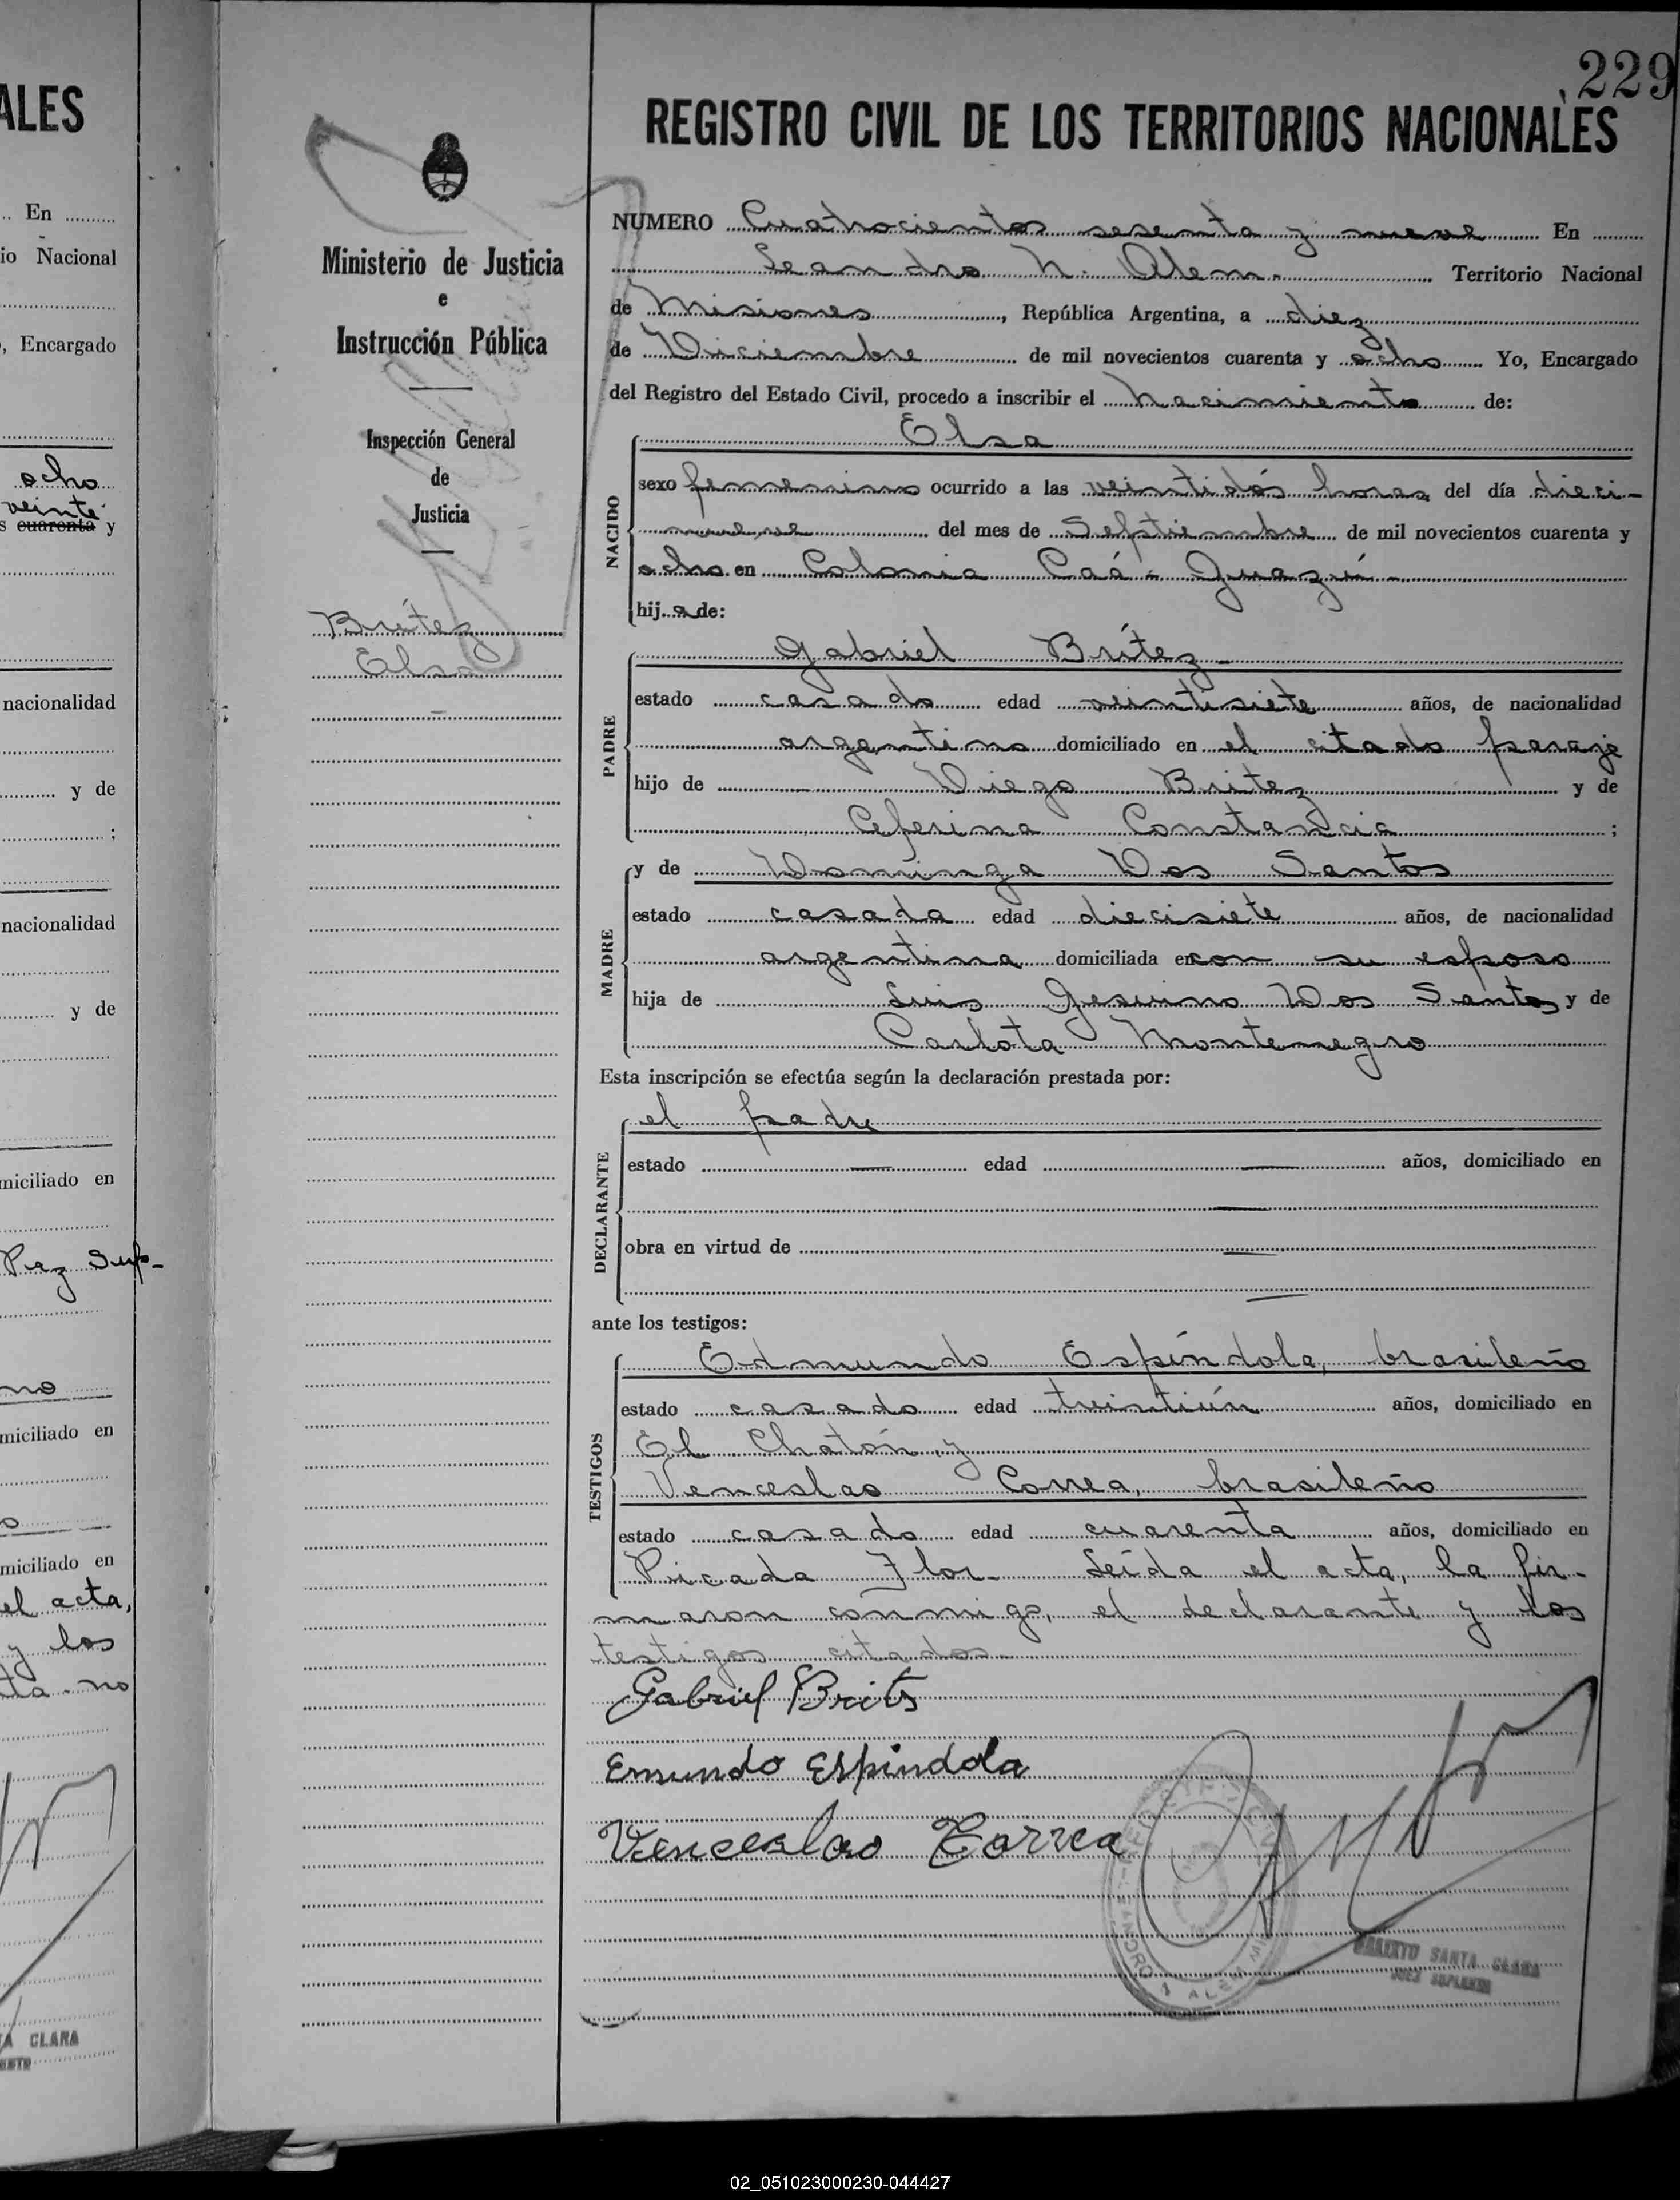 229
REGISTRO CIVIL DE LOS TERRITORIOS NACIONALES
Ministerio de Justicia
e
Instrucción Pública
Inspección General
de
Justicia
Brítez
Elsa
NUMERO Cuatrocientos sesenta y nueve En
Leandro N. Alem. Territorio Nacional
de Misiones, República Argentina, a diez
de Diciembre de mil novecientos cuarenta y ocho Yo, Encargado
del Registro del Estado Civil, procedo a inscribir el nacimiento de:
NACIDO
Elsa
sexo femenino ocurrido a las veintidós horas del día dieci-
nueve del mes de Septiembre de mil novecientos cuarenta y
ocho en Colonia Caá-Guazú-
hija de:
PADRE
Gabriel Brítez
estado casado edad veintisiete años, de nacionalidad
argentino domiciliado en el citado paraje
hijo de Diego Britez y de
Ceferina Constancia ;
MADRE
y de Dominga Dos Santos
estado casada edad diecisiete años, de nacionalidad
argentina domiciliada en con su esposo
hija de Luis Gesuino Dos Santos y de
Carlota Montenegro
Esta inscripción se efectúa según la declaración prestada por:
DECLARANTE
el padre
estado — edad — años, domiciliado en
—
obra en virtud de —
—
ante los testigos:
TESTIGOS
Edmundo Espíndola, brasileño
estado casado edad treintiún años, domiciliado en
El Chatón, y
Venceslao Correa, brasileño
estado casado edad cuarenta años, domiciliado en
Picada Flor- Leída el acta, la fir-
maron conmigo, el declarante y los
testigos citados.-
Gabriel Brits
Emundo Espindola
Venceslao Correa
SANTA CLARA
JUEZ SUPLENTE
ALES
En
io Nacional
, Encargado
ocho
veinte
s cuarenta y
nacionalidad
y de
;
nacionalidad
y de
miciliado en
Paz Sup-
no
miciliado en
o
miciliado en
el acta,
y los
ta - no
TA CLARA
02_051023000230-044427